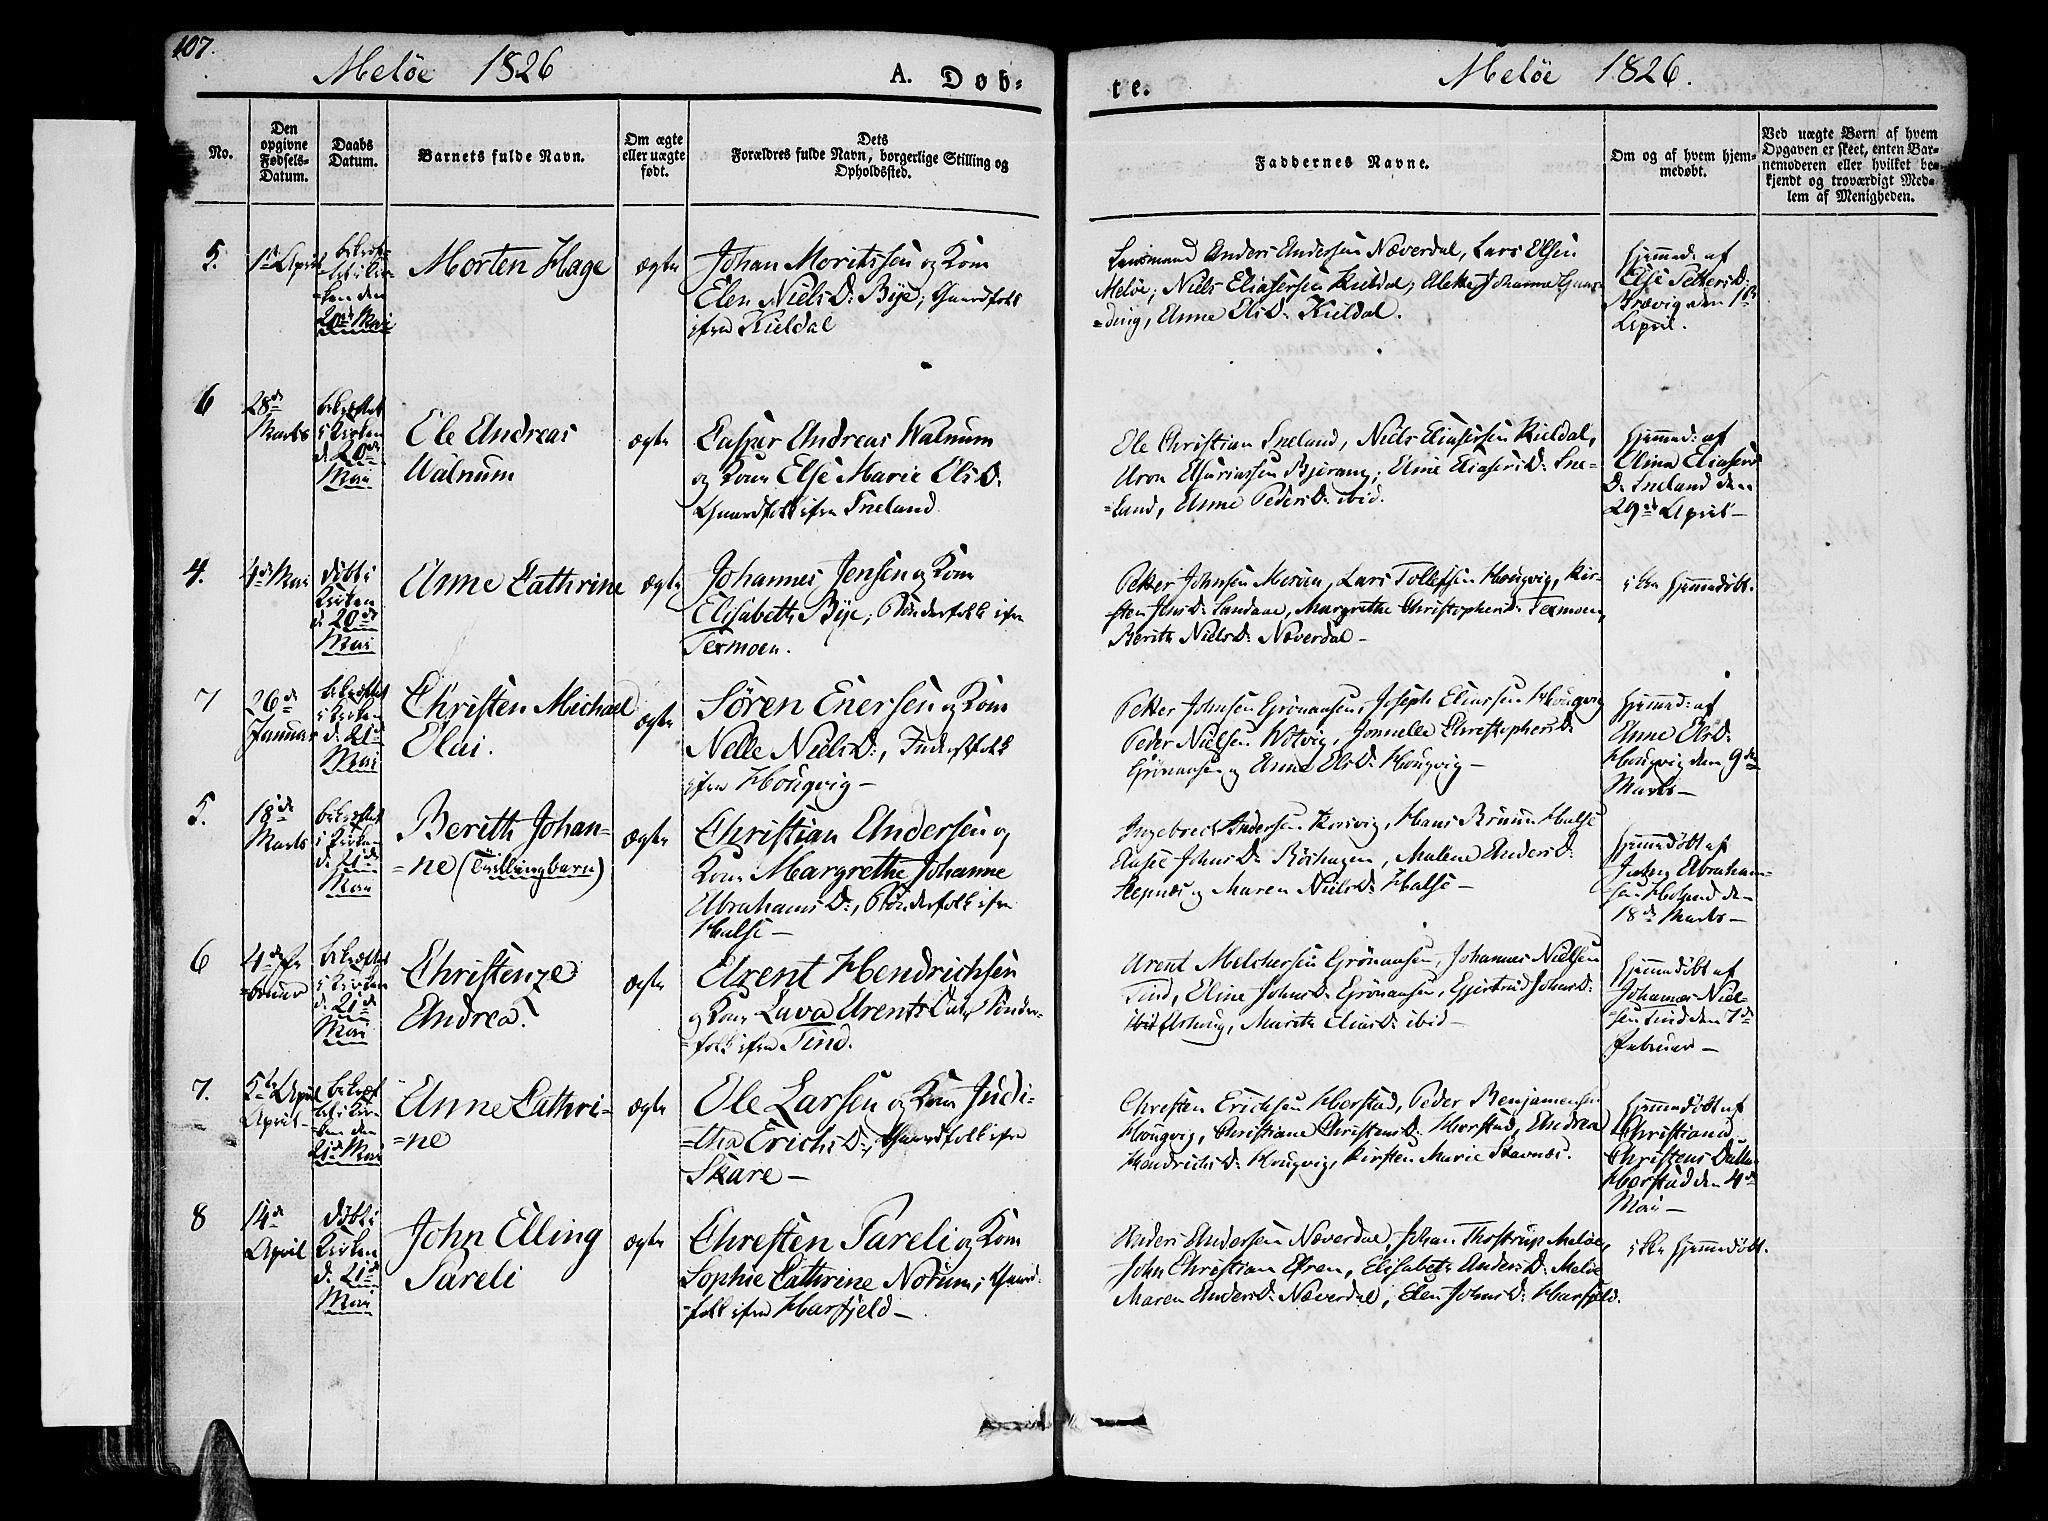 107.
Meløe 1826
A. Døb-
te.
Meløe 1826.
No.
Den
opgivne
Fødsels-
Datum.
Daabs
Datum.
Barnets fulde Navn.
Om ægte
eller uægte
født.
Dets
Forældres fulde Navn, borgerlige Stilling og
Opholdssted.
Faddernes Navne.
Om og af hvem hjem-
medøbt.
Ved uægte Børn af hvem
Opgaven er skeet, enten Bar-
nemoderen eller hvilket be-
kjendt og troværdigt Med-
lem af Menigheden.
5.
1ste April
bekræf-
tet i Kir-
=ken den
20de Mai
Morten Hage
ægte
Johan Moritssen og Kone
Elen Niels D: Bye, Gaardfolk
ifra Kieldal
Lensmand Anders Andersen Næverdal, Lars Olsen
Meløe, Niels Eliasersen Kieldal, Johanna
=ding, Anne Ols D: Kieldal.
hjemmed: af
Else Petters D:
den 1ste
April.
6
28de
Marts
bekræftet
i Kirken
d. 20de
Mai
Ole Andreas
Walnum
ægte
Caspar Andreas Walnum
og Kone Else Marie Ols D:
Gaardfolk ifra Sneland
Ole Christian Sneland, Niels Eliasersen Kieldal,
Aron Bjerang, Eline Eliasers D: Sne-
=land, Anne Peders D: ibid.
hjemmed: af
Elina Eliasers
D: Sneland den
29de April –
4.
4de Mai
døbt i
Kirken
d. 20de
Mai
Anne Cathrine
ægte
Johannes Jensen og Kone
Elisabeth Bye, Bønderfolk ifra
Termoen.
Petter Johnsen Meroen, Lars Tollefsen Hougvig, Kir-
sten Jens D: Sandaae, Margrethe Christophers D: Termoen,
Berith Niels D: Næverdal –
ikke hjemmedøbt.
7
26de
Januar
bekræftet
i Kirken
d. 21de
Mai
Christen Michael
Elai.
ægte
Søren Enersen og Kone
Nelle Niels D:, Inderstfolk
ifra Hougvig –
Petter Johnsen Grønaasen, Joseph Eliassen Hougvig
Peder Nielsen Wotvig, Jonnelle Christophers D:
Grønaasen og Anne Ols D: Hougvig –
hjemmed: af
Anne Ols D:
Hougvig den 9de
Marts –
5.
18de
Marts
bekræftet
i Kirken
d. 21de
Mai
Berith Johan-
=ne (Tvillingbarn)
ægte
Christian Andersen og
Kone Margrethe Johanne
Abrahams D:, Bønderfolk ifra
Halse –
Andersen Korsvig, Hans Bruun Halse
Johns D: Røshagen, Malene Anders D:
og Maren Niels D: Halse –
hjemmedøbt af
Abraham-
=sen den
18de Marts –
6
4de Fe
=bruar
bekræftet
i Kirken
d. 21de
Mai
Christenze
Andrea.
ægte
Arent Hendrichsen
og Kone Lava Arents Datter, Bønder-
=folk ifra Tind.
Arent Melchersen Grønaasen, Johannes Nielsen
Tind, Eline Johns D: Grønaasen, Gjertrud Johns D:
Marith Elias D: ibid –
hjemmedøbt af
Johannes Niel-
sen Tind den 7de
Februar –
7.
5te April
April –
bekræf
tet i Kir-
ken den
21de Mai
Anne Cathri-
=ne
ægte
Ole Larsen og Kone Judi-
=tha Erichs D:, Gaardfolk ifra
Skare –
Christen Erichsen Horstad, Peder Benjaminsen
Hougvig, Christiane Christens D: Horstad, Andrea
Hendrichs D: Hougvig, Kirsten Marie Stavnæs.
hjemmedøbt af
Christiana
Christens Datter
Horstad den 4de
Mai –
8
14de
April
døbt i
Kirken
d. 21de
Mai
John Elling
Pareli
ægte
Christen Pareli og Kone
Sophie Cathrine Norum, Gaard-
=folk ifra Harfjeld –
Anders Andersen Næverdal, Johan Thostrup Meløe,
John Christian Efren, Elisabeth Anders D: Meløe
Maren Anders D: Næverdal, Elen Johns D: Harfjeld.
ikke hjemmedøbt.